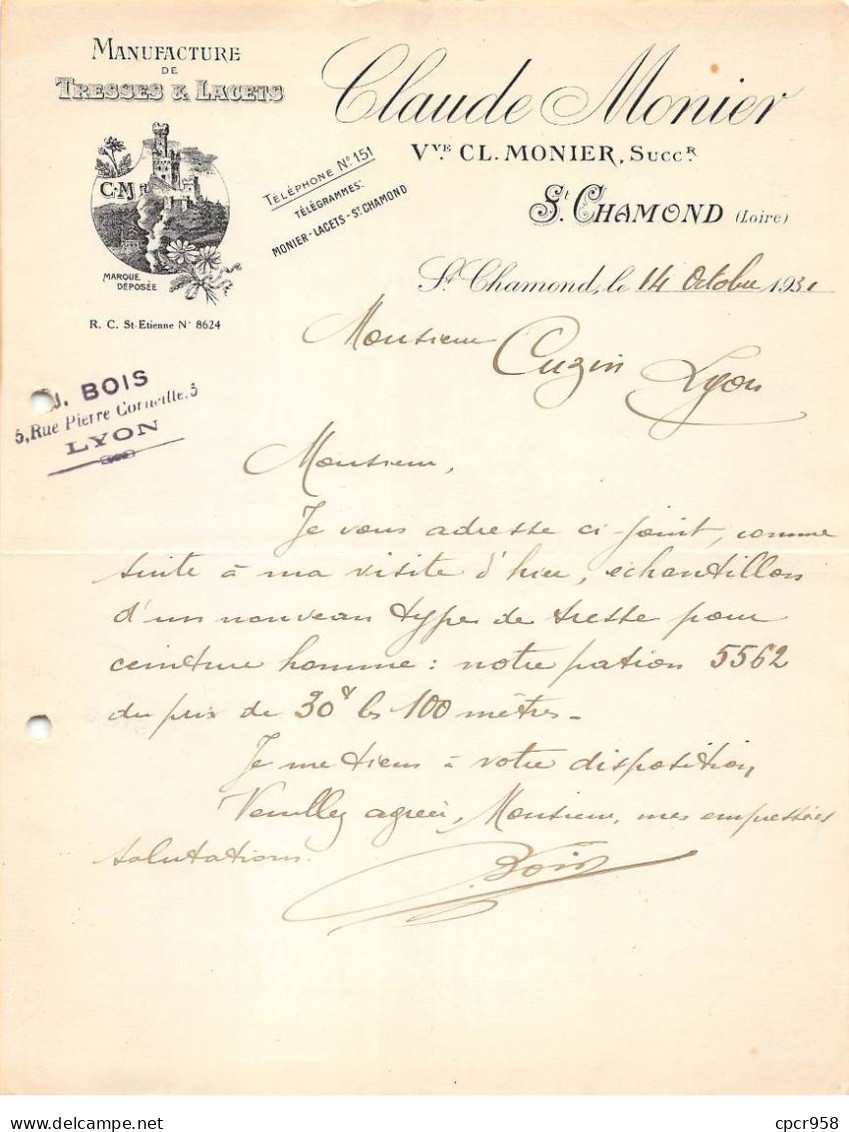 MANUFACTURE
DE
TRESSES & LACETS
C. M
MARQUE
DÉPOSÉE
R. C. St-Etienne N° 8624
TÉLÉPHONE N° 151
TÉLÉGRAMMES:
MONIER-LACETS-ST CHAMOND
Claude Monier
VVE CL. MONIER, SUCCR
St. CHAMOND (Loire)
St Chamond, le 14 Octobre 1931
Monsieur
Cuzin Lyon
J. BOIS
5, Rue Pierre Corneille, 5
LYON
Monsieur,
Je vous adresse ci-joint, comme
suite à ma visite d'hier, échantillon
d'un nouveau type de tresse pour
ceinture homme : notre pation 5562
du prix de 30 les 100 mètres -
Je me tiens à votre disposition
Veuillez agréer, Monsieur, mes empressées
salutations.
Bois
cpcr958